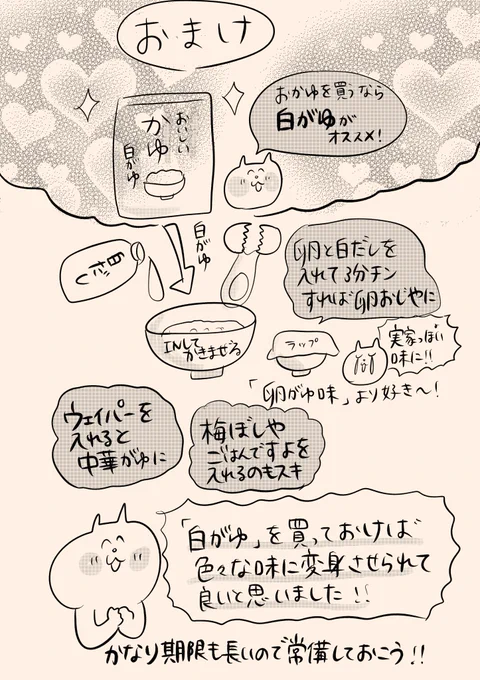 おまけ
おかゆを買うなら
白がゆが
オススメ!
おいしい
かゆ
白がゆ
白がゆ
白だし
卵と白だしを
入れて3分チン
すれば卵おじやに
INして
かきまぜる
ラップ
実家っぽい
味に!!
「卵がゆ味」より好き〜!
ウェイパーを
入れると
中華がゆに
梅ぼしや
ごはんですよを
入れるのもスキ
「白がゆ」を買っておけば
色々な味に変身させられて
良いと思いました!!
かなり期限も長いので常備しておこう!!